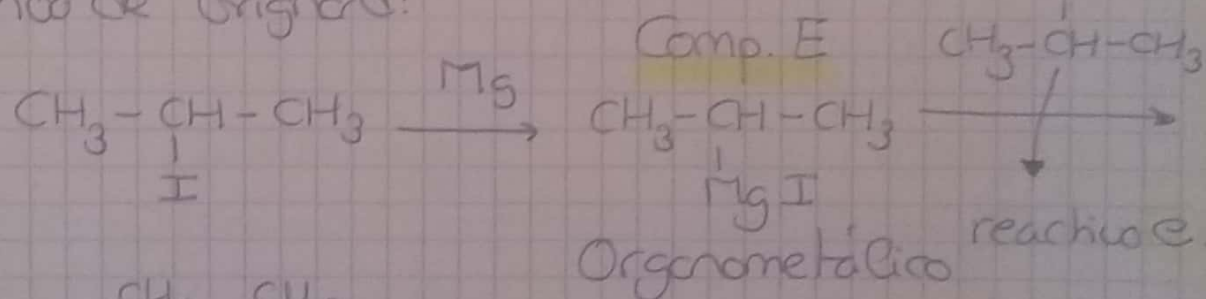 Comp. E
CH3-CH-CH3
CH3-CH-CH3 Mg CH3-CH-CH3
I MgI
Organometálico reactivo e